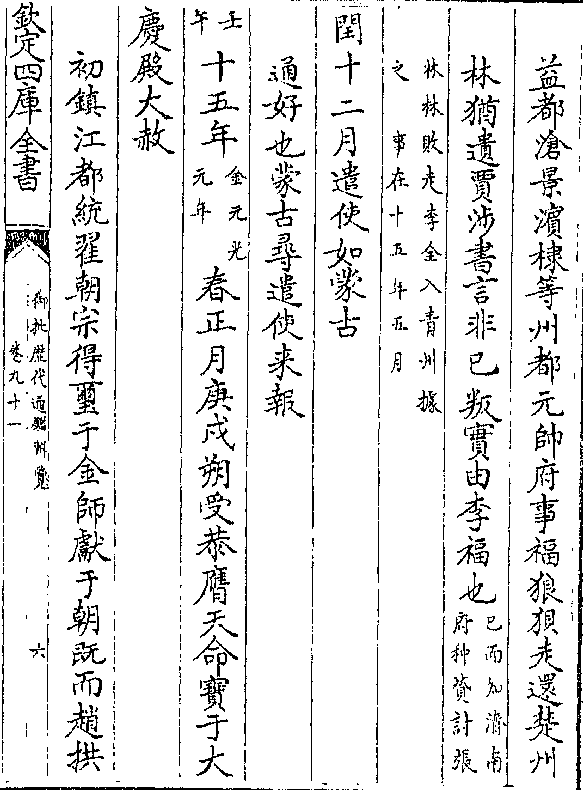 益都滄景濱棣等州都元帥府事福狼狽走還楚州
林猶遺賈涉書言非已叛實由李福也
已而知濟南
府种贇討張
林林敗走李全入青州據
之 事在十五年五月
閏十二月遣使如蒙古
通好也蒙古尋遣使来報
壬午
十五年
金元光
元年
春正月庚戌朔受恭膺天命寶于大
慶殿大赦
初鎮江都統翟朝宗得璽于金師獻于朝既而趙拱
欽定四庫全書
御批歷代通鑑輯覽
卷九十一
六